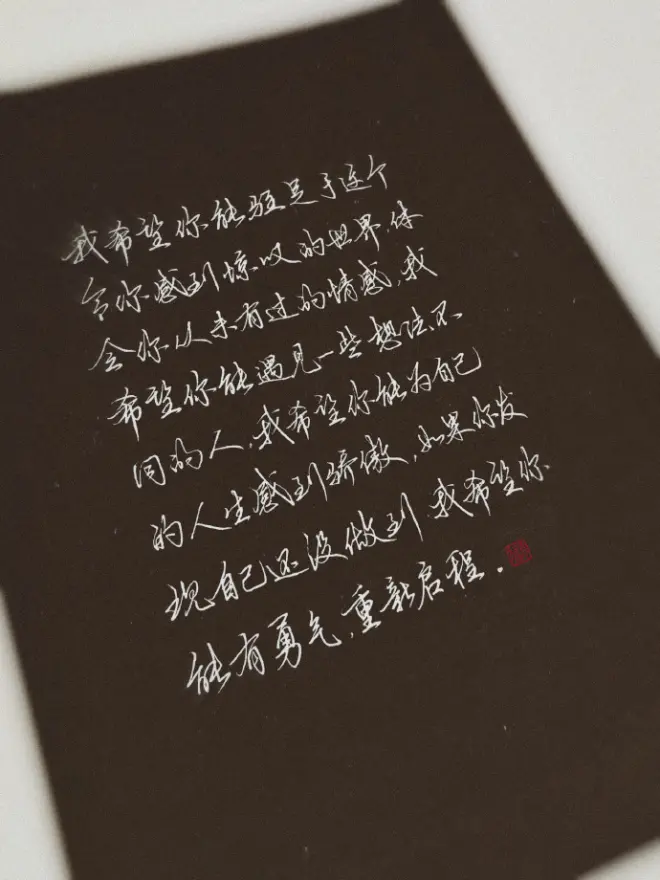 我希望你能驻足于这个
令你感到惊叹的世界,体
会你从未有过的情感,我
希望你能遇见一些想法不
同的人,我希望你能为自己
的人生感到骄傲,如果你发
现自己还没做到 我希望你
能有勇气,重新启程.